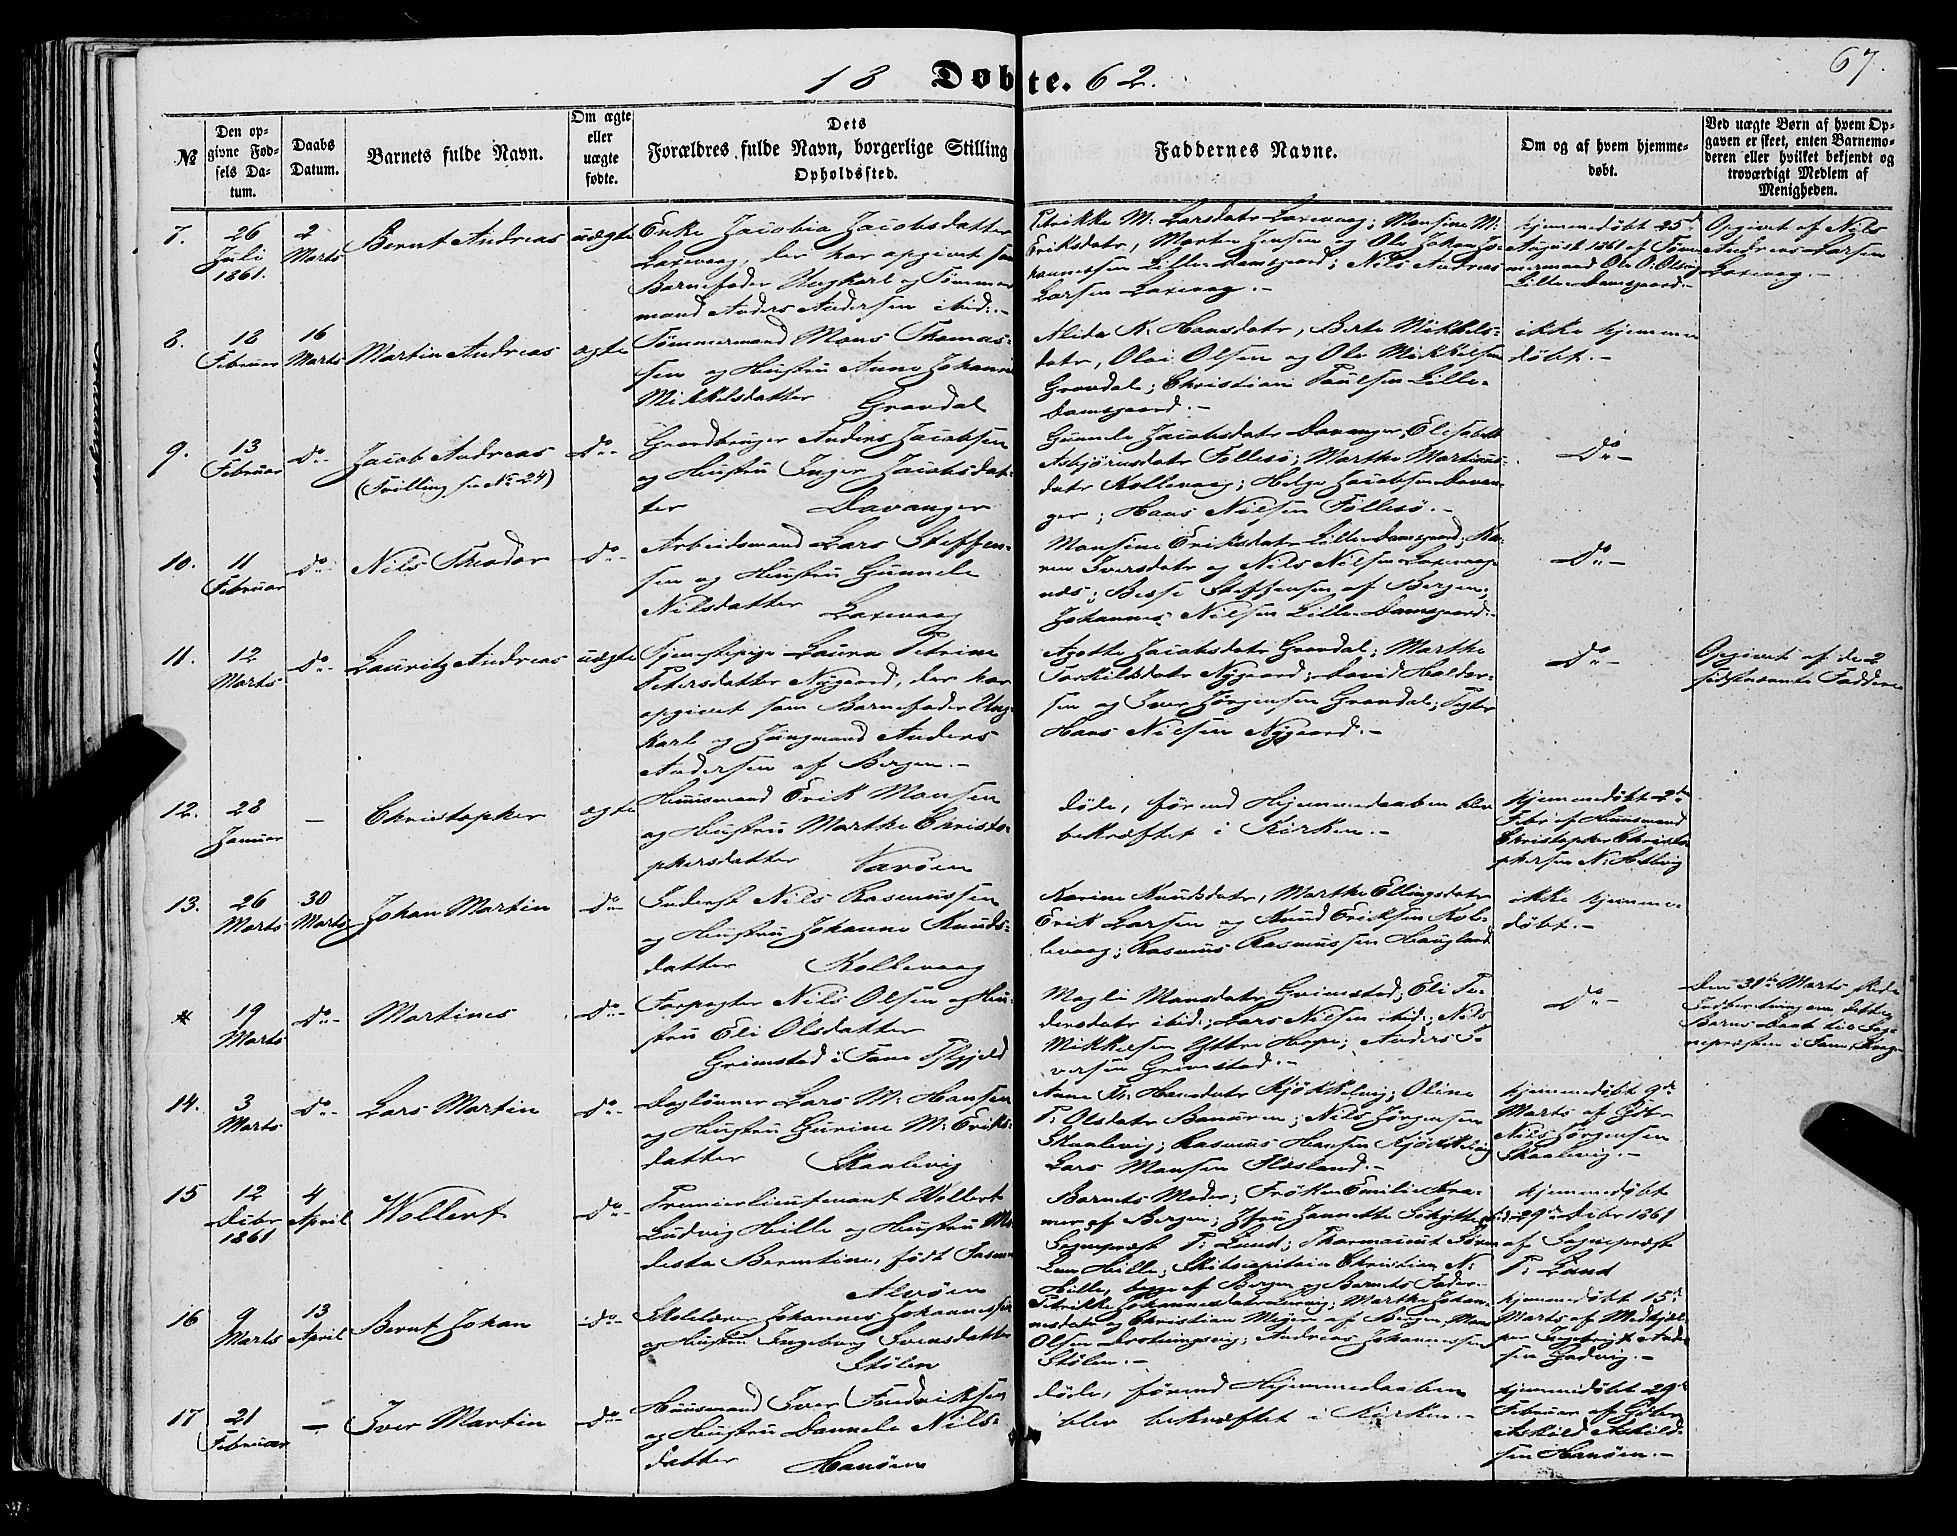 67.
18 Døbte. 62.
№
Den op-
givne Fød-
sels Da-
tum.
Daabs
Datum.
Barnets fulde Navn.
Om ægte
eller
uægte
fødte.
Dets
Forældres fulde Navn, borgerlige Stilling
Opholdssted.
Faddernes Navne.
Om og af hvem hjemme-
døbt.
Ved uægte Børn af hvem Op-
gaven er skeet, enten Barnemo-
deren eller hvilket bekjendt og
troværdigt Medlem af
Menigheden.
7.
26
Juli
1861.
2
Marts
Bernt Andreas
uægte
Enke Jacobia Jacobsdatter
Laxevaag, der har opgivet som
Barnefader Ungkarl og Tømmer-
mand Anders Andersen ibid:.-
Petrikke M: Larsdatr Laxevaag; Mansine M:
Eriksdatr, Morten Jensen og Ole Johan Jo-
hannessen Lille-Damsgaard; Nils Andreas
Larsen Laxevaag.-
hjemmedøbt 25de
August 1861 af Tøm-
mermand Ole O: Olsvig
Lille-Damsgaard.-
Opgivet af Nils
Andreas Larsen
Laxevaag.-
8.
18
Februar
16
Marts
Martin Andreas
ægte
Tømmermand Mons Thomas-
sen og Hustru Anne Johanne
Mikkelsdatter Gravdal
Alida K. Hansdatr, Berte Mikkels-
datr, Olai Olsen og Ole Mikkelsen
Gravdal; Christian Paulsen Lille-
Damsgaard.-
ikke hjemme-
døbt.-
9.
13
Februar
Do-
Jacob Andreas
(Tvilling se No 24)
Do-
Gaardbruger Anders Jacobsen
og Hustru Inger Jacobsdat-
ter Davanger
Gunnele Jacobsdatr Davanger, Elisabeth
Asbjørnsdatr Follesø; Marthe Martinus-
datr Kollevaag; Helge Jacobsen Davan-
ger; Hans Nielsen Follesø.-
Do-
10.
11
Februar
Do-
Nils Theodor
Do-
Arbeidsmand Lars Steffen-
sen og Hustru Gunnele
Nilsdatter Laxevaag
Mansine Eriksdatr Lille-Damsgaard; Ka-
ren Iversdatr og Nils Nilsen Laxevaag-
næs; Besse Steffensen af Bergen;
Johannes Nilsen Lille-Damsgaard.-
Do-
11.
12
Marts
Do-
Lauritz Andreas
uægte
Tjenestepige Laura Petrine
Petersdatter Nygaard, der har
opgivet som Barnefader Ung-
karl og Jungmand Anders
Andersen af Bergen.-
Agethe Jacobsdatr Gravdal; Marthe
Torkildsdatr Nygaard; David Halvor-
sen og Iver Jørgensen Gravdal;
Hans Nielsen Nygaard.-
Do-
Opgivet af de 2
sidstnævnte Faddere
12.
28
Januar
-
Christopher
ægte
Huusmand Erik Monsen
og Hustru Marthe Christo-
phersdatter Varøen
døde, førend Hjemmedaaben blev
bekræftet i Kirken.-
hjemmedøbt 2den
Febr af Huusmand
Christopher Christo-
phersen N: Helvig
13.
26
Marts
30
Marts
Johan Martin
Do-
Inderst Nils Rasmussen
og Hustru Johanne Knuds-
datter Kollevaag
Karine Knudsdatr, Marthe Ellingsdatr
Erik Larsen og Knud Eriksen Kol-
levaag; Rasmus Rasmussen Haugland
ikke hjemme-
døbt.-
*
19
Marts
Do-
Martines
Do-
Forpagter Nils Olsen og Hu-
stru Eli Olsdatter
Grimstad i Fane Pstgjeld
Magli Monsdatr Grimstad; Eli Pe-
dersdatr ibid:; Lars Nilsen ibid:; Nils
Mikkelsen Yttre Hope; Anders I-
versen Grimstad.-
Do-
Den 31te Marts skede
Indberetning om dette
Barns Daab til Sog-
nepræsten i Fane
14.
3
Marts
Do-
Lars Martin
Do-
Daglønner Lars M: Hansen
og Hustru Gurine M: Eriks-
datter Skaalevig
Anne K: Hansdatr Kjøkkelvig; Oline
T: Olsdatr Banuren; Nils Jørgensen
Skaalevig; Rasmus Hansen Kjøkkelvig
Lars Monsen Flæsland.-
hjemmedøbt 9de
Marts af Gbr
Nils Jørgensen
Skaalevig.-
15
12
Debr
1861
4
April
Wollert
Do-
Premierlieutenant Wollert
Ludvig Hille og Hustru Mo-
desta Berentine, født Fasmer
Alvøen
Barnets Moder; Frøken Emilie Kra-
mer af Bergen; Jfru Jannette Schytte ibid:
Sognepræst T: Lund; Pharmaceut Søren
Lem Hille; Skibscapitain Christian N:
Hille, begge af Bergen og Barnets Fader.-
hjemmedøbt
29de Debr 1861
af Sognepræst
T: Lund
16
9
Marts
13
April
Bernt Johan
-Do-
Skolelærer Johannes Johannessen
og Hustru Ingeborg Svensdatter
Stølen
Petrikke Johannesdatr; Marthe Johan-
nesdatr og Christian Meyer af Bergen, Mons
Olsen Drotningsvig; Andreas Johannessen
Stølen.-
hjemmedøbt 15de
Marts af Medhjæl-
per Ingebrigt Ander-
sen Gadvig.-
17
21
Februar
-
Iver Martin
-Do-
Huusmand Iver Fredriksen
og Hustru Dannele Nils-
datter Hanøen
døde, førend Hjemmedaaben
blev bekræftet i Kirken.-
hjemmedøbt 29de
Februar af Gbr
Askild Askild-
sen Hanøen.-